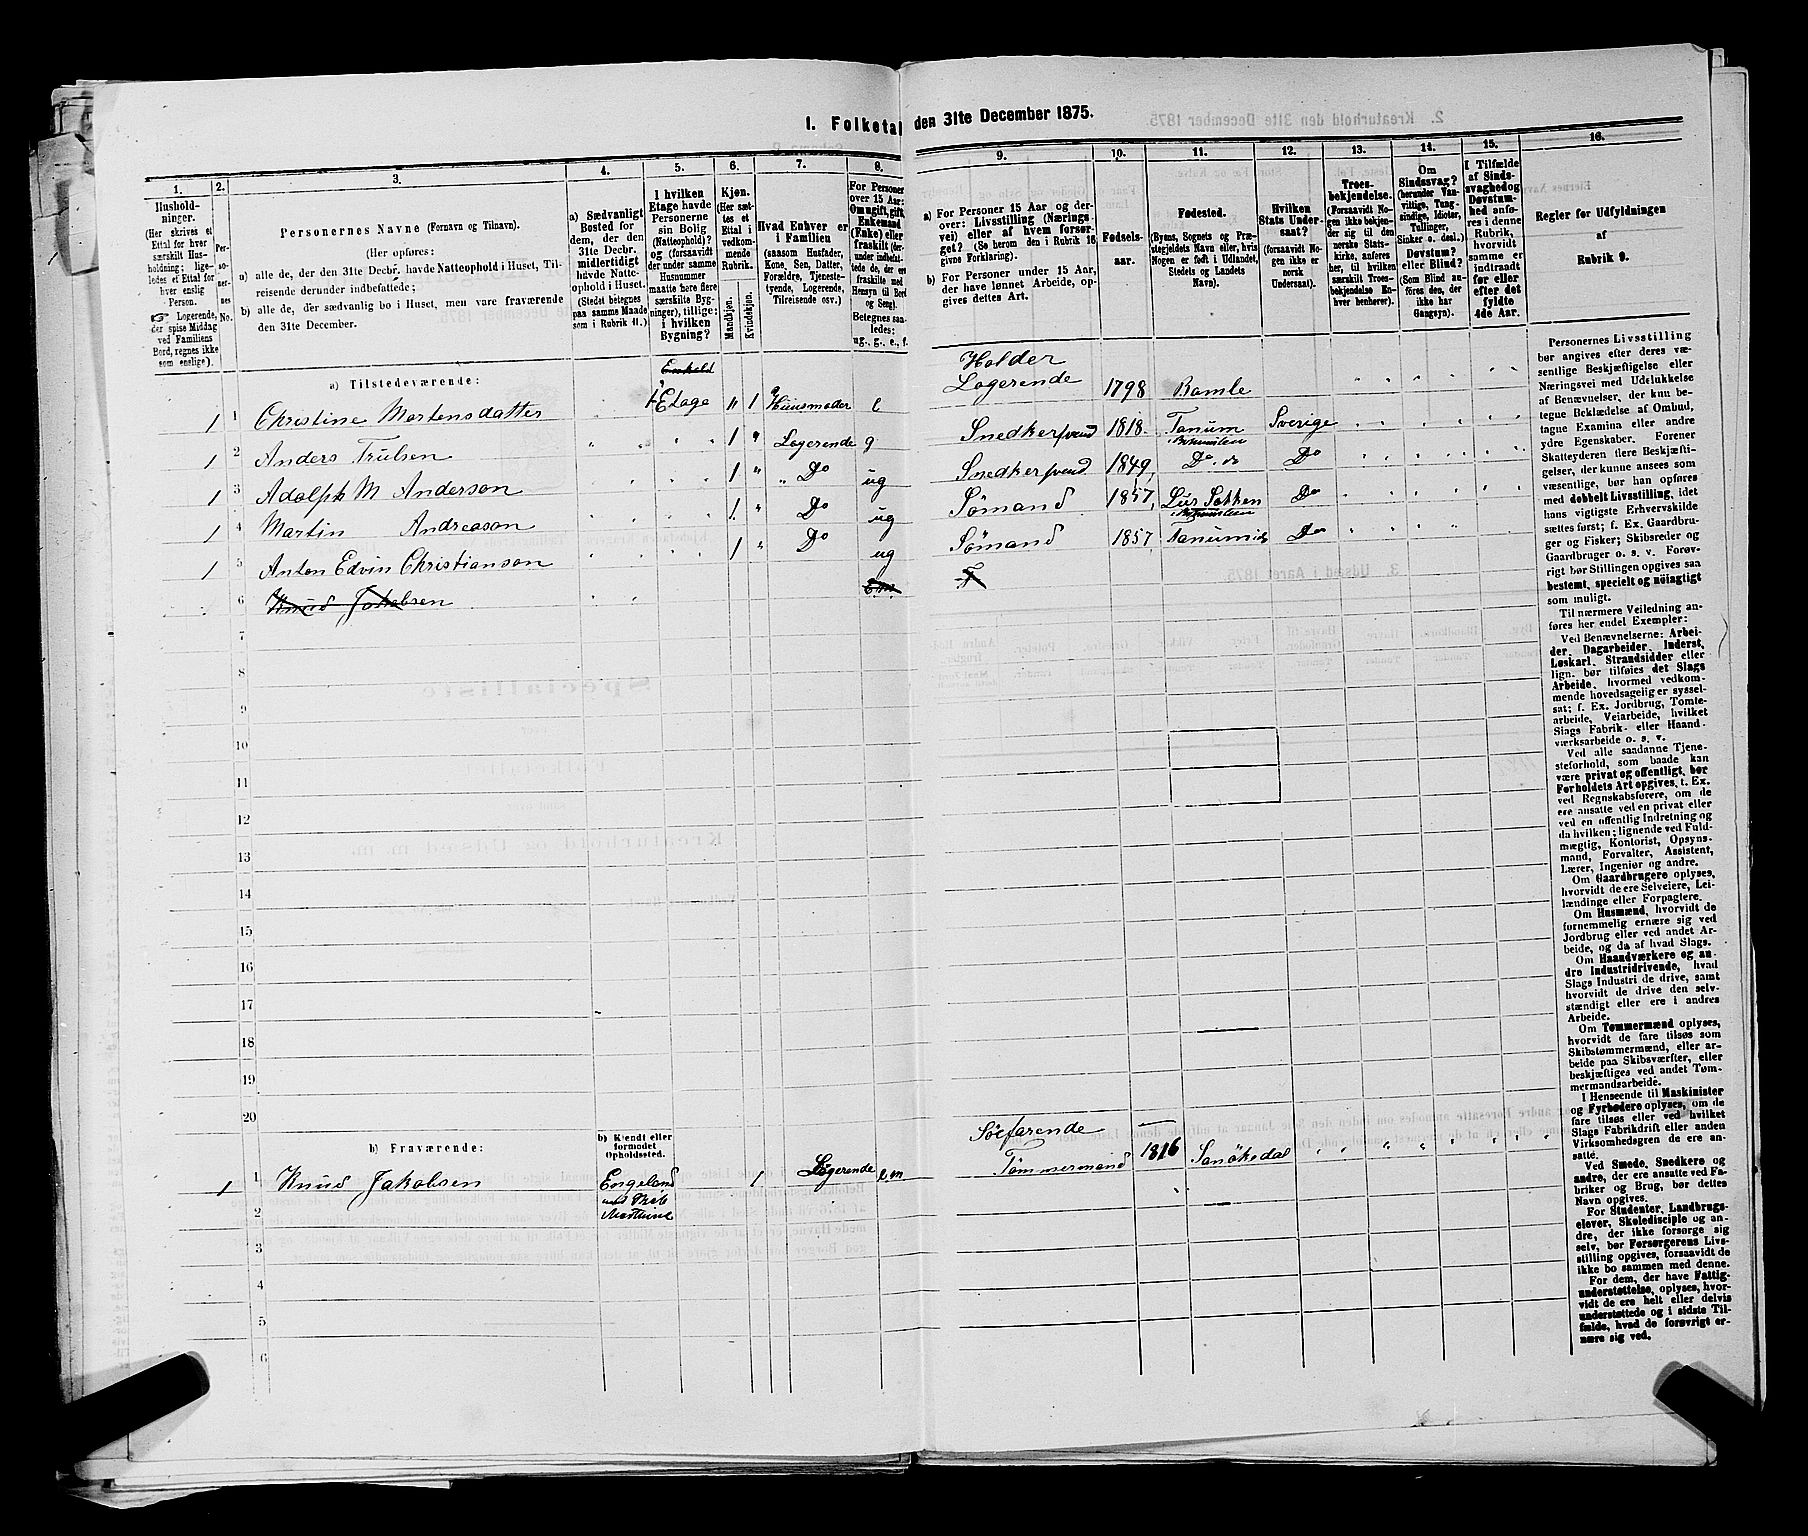 I. Folketal den 31te December 1875.
1.
Husholdninger.
(Her skrives et Ettal for hver særskilt Husholdning; ligeledes et Ettal for hver enslig Person.
☞ Logerende, der spise Middag ved Familiens Bord, regnes ikke som enslige).
2.
Personernes No.
3.
Personernes Navne (Fornavn og Tilnavn).
(Her opføres:
a) alle de, der den 31te Decbr. havde Natteophold i Huset, Tilreisende derunder indbefattede;
b) alle de, der sædvanlig bo i Huset, men vare fraværende den 31te December.
4.
a) Sædvanligt Bosted for dem, der den 31te Decbr. midlertidigt havde Natteophold i Huset.
(Stedet betegnes paa samme Maade som i Rubrik 11.)
5.
I hvilken Etage havde Personerne sin Bolig (Natteophold)?
og (forsaavidt der under samme Husnummer maatte høre flere særskilte Bygninger), tillige: i hvilken Bygning?
6.
Kjøn.
(Her sættes et Ettal i vedkommende Rubrik.
Mandkjøn.
Kvindekjøn.
7.
Hvad Enhver er i Familien
(saasom Husfader, Kone, Søn, Datter, Forældre, Tjenestetyende, Logerende, Tilreisende osv.)
8.
For Personer over 15 Aar: Om ugift, gift, Enkemand (Enke) eller fraskilt (derunder indbefattede de, der ere fraskilte med Hensyn til Bord og Seng).
Betegnes saaledes: ug., g., e., f.
9.
a) For Personer 15 Aar og derover: Livsstilling (Næringsvei) eller af hvem forsørget? (Se herom den i Rubrik 16 givne Forklaring).
b) For Personer under 15 Aar, der have lønnet Arbeide, opgives dettes Art.
10.
Fødselsaar.
11.
Fødested.
(Byens, Sognets og Præstegjeldets Navn eller, hvis Nogen er født i Udlandet, Stedets og Landets Navn).
12.
Hvilken Stats Undersaat?
(forsaavidt Nogen ikke er norsk Undersaat).
13.
Troesbekjendelse.
(Forsaavidt Nogen ikke bekjender sig til den norske Statskirke, anføres her, til hvilken Troesbekjendelse Enhver henhører).
14.
Om Sindssvag? (herunder Vanvittige, Tungsindige, Idioter, Tullinger, Sinker o. desl.)
Døvstum? eller Blind? (Som Blind anføres den, der ikke har Gangsyn).
15.
I Tilfælde af Sindssvaghed og Døvstumhed anføres i denne Rubrik, hvorvidt samme er indtraadt før eller efter det fyldte 4de Aar.
16.
Regler for Udfyldningen af Rubrik 9.
a) Tilstedeværende:
Enkeld
1 1 Christine Mortensdatter 1 Etage " 1 Huusmoder e Holder Logerende 1798 Bamle
1 2 Anders Trulsen 1 " Logerende g Snedkersvend 1818 Tanum Bohuslen Sverige
1 3 Adolph M Anderson 1 " Do ug Snedkersvend 1849 Do. do Do
1 4 Martin Andreason 1 " Do ug Sømand 1857 Do
1 5 Anton Edvin Christianson 1 " Do ug Sømand 1857 Do
6 Knud Jakobsen Em
7
8
9
10
11
12
13
14
15
16
17
18
19
20
b) Fraværende:
b) Kjendt eller formodet Opholdssted.
1 1 Knud Jakobsen Engeland 1 Logerende em Søefarende Tømmermand 1816 Sanökedal
2
3
4
5
6
Personernes Livsstilling bør angives efter deres væsentlige Beskjæftigelse eller Næringsvei med Udelukkelse af Benævnelser, der kun betegne Beklædelse af Ombud, tagne Examina eller andre ydre Egenskaber. Forener Skatteyderen flere Beskjæftigelser, der kunne ansees som væsentlige, bør han opføres med dobbelt Livsstilling, idet hans vigtigste Erhvervskilde sættes først; f. Ex. Gaardbruger og Fisker; Skibsreder og Gaardbruger o. s. v. Forøvrigt bør Stillingen opgives saa bestemt, specielt og nöiagtigt som muligt.
Til nærmere Veiledning anføres her endel Exempler:
Ved Benævnelserne: Arbeider, Dagarbeider, Inderst, Løskarl, Strandsidder eller lign. bør tilføies det Slags Arbeide, hvormed vedkommende hovedsagelig er sysselsat; f. Ex. Jordbrug, Tomtearbeide, Veiarbeide, hvilket Slags Fabrik- eller Haandværksarbeide o. s. v.
Ved alle saadanne Tjenesteforhold, som baade kan være privat og offentligt, bør Forholdets Art opgives, t. Ex. ved Regnskabsførere, om de ere ansatte ved en privat eller ved en offentlig Indretning og da hvilken; lignende ved Fuldmægtig, Kontorist, Opsynsmand, Forvalter, Assistent, Lærer, Ingeniør og andre.
Om Gaardbrugere oplyses, hvorvidt de ere Selveiere, Leilændinge eller Forpagtere.
Om Husmænd, hvorvidt de fornemmelig ernære sig ved Jordbrug eller ved andet Arbeide, og da af hvad Slags.
Om Haandværkere og andre Industridrivende, hvad Slags Industri de drive, samt hvorvidt de drive den selvstændigt eller ere i andres Arbeide.
Om Tømmermænd oplyses, hvorvidt de fare tilsøs som Skibstømmermænd, eller arbeide paa Skibsværfter, eller beskjæftiges ved andet Tømmermandsarbeide.
I Henseende til Maskinister og Fyrbødere oplyses, om de fare tilsøs eller ved hvilket Slags Fabrikdrift eller anden Virksomhedsgren de ere ansatte.
Ved Smede, Snedkere og andre, der ere ansatte ved Fabriker og Brug, bør dettes Navn opgives.
For Studenter, Landbrugselever, Skoledisciple og andre, der ikke forsørge sig selv, bør Forsørgerens Livsstilling opgives, forsaavidt de ikke bo sammen med denne.
For dem, der have Fattigunderstøttelse, oplyses, hvorvidt de ere helt eller delvis understøttede og i sidste Tilfælde, hvad de forøvrigt ernære sig ved.